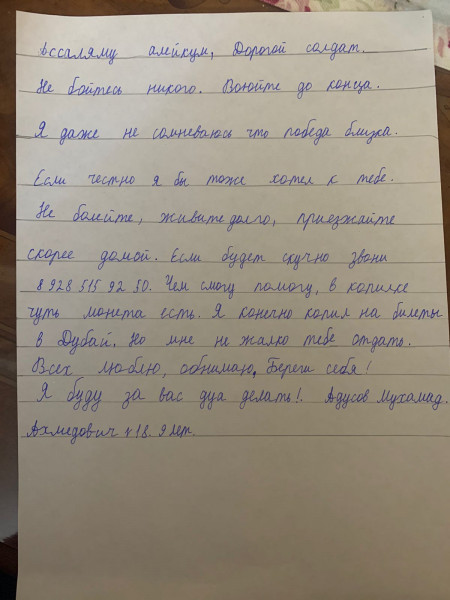 Ассаляму алейкум, Дорогой солдат.
Не бойтесь никого. Воюйте до конца.
Я даже не сомневаюсь что победа близка.
Если честно я бы тоже хотел к тебе.
Не болейте, живите долго, приезжайте
скорее домой. Если будет скучно звони
8 928 515 92 50. Чем смогу помогу, в копилке
чуть монета есть. Я конечно копил на билеты
в Дубай. Но мне не жалко тебе отдать.
Всех люблю, обнимаю, Береги себя!
Я буду за вас дуа делать!. Адусов Мухамад.
Ахмедович 18. 9 лет.